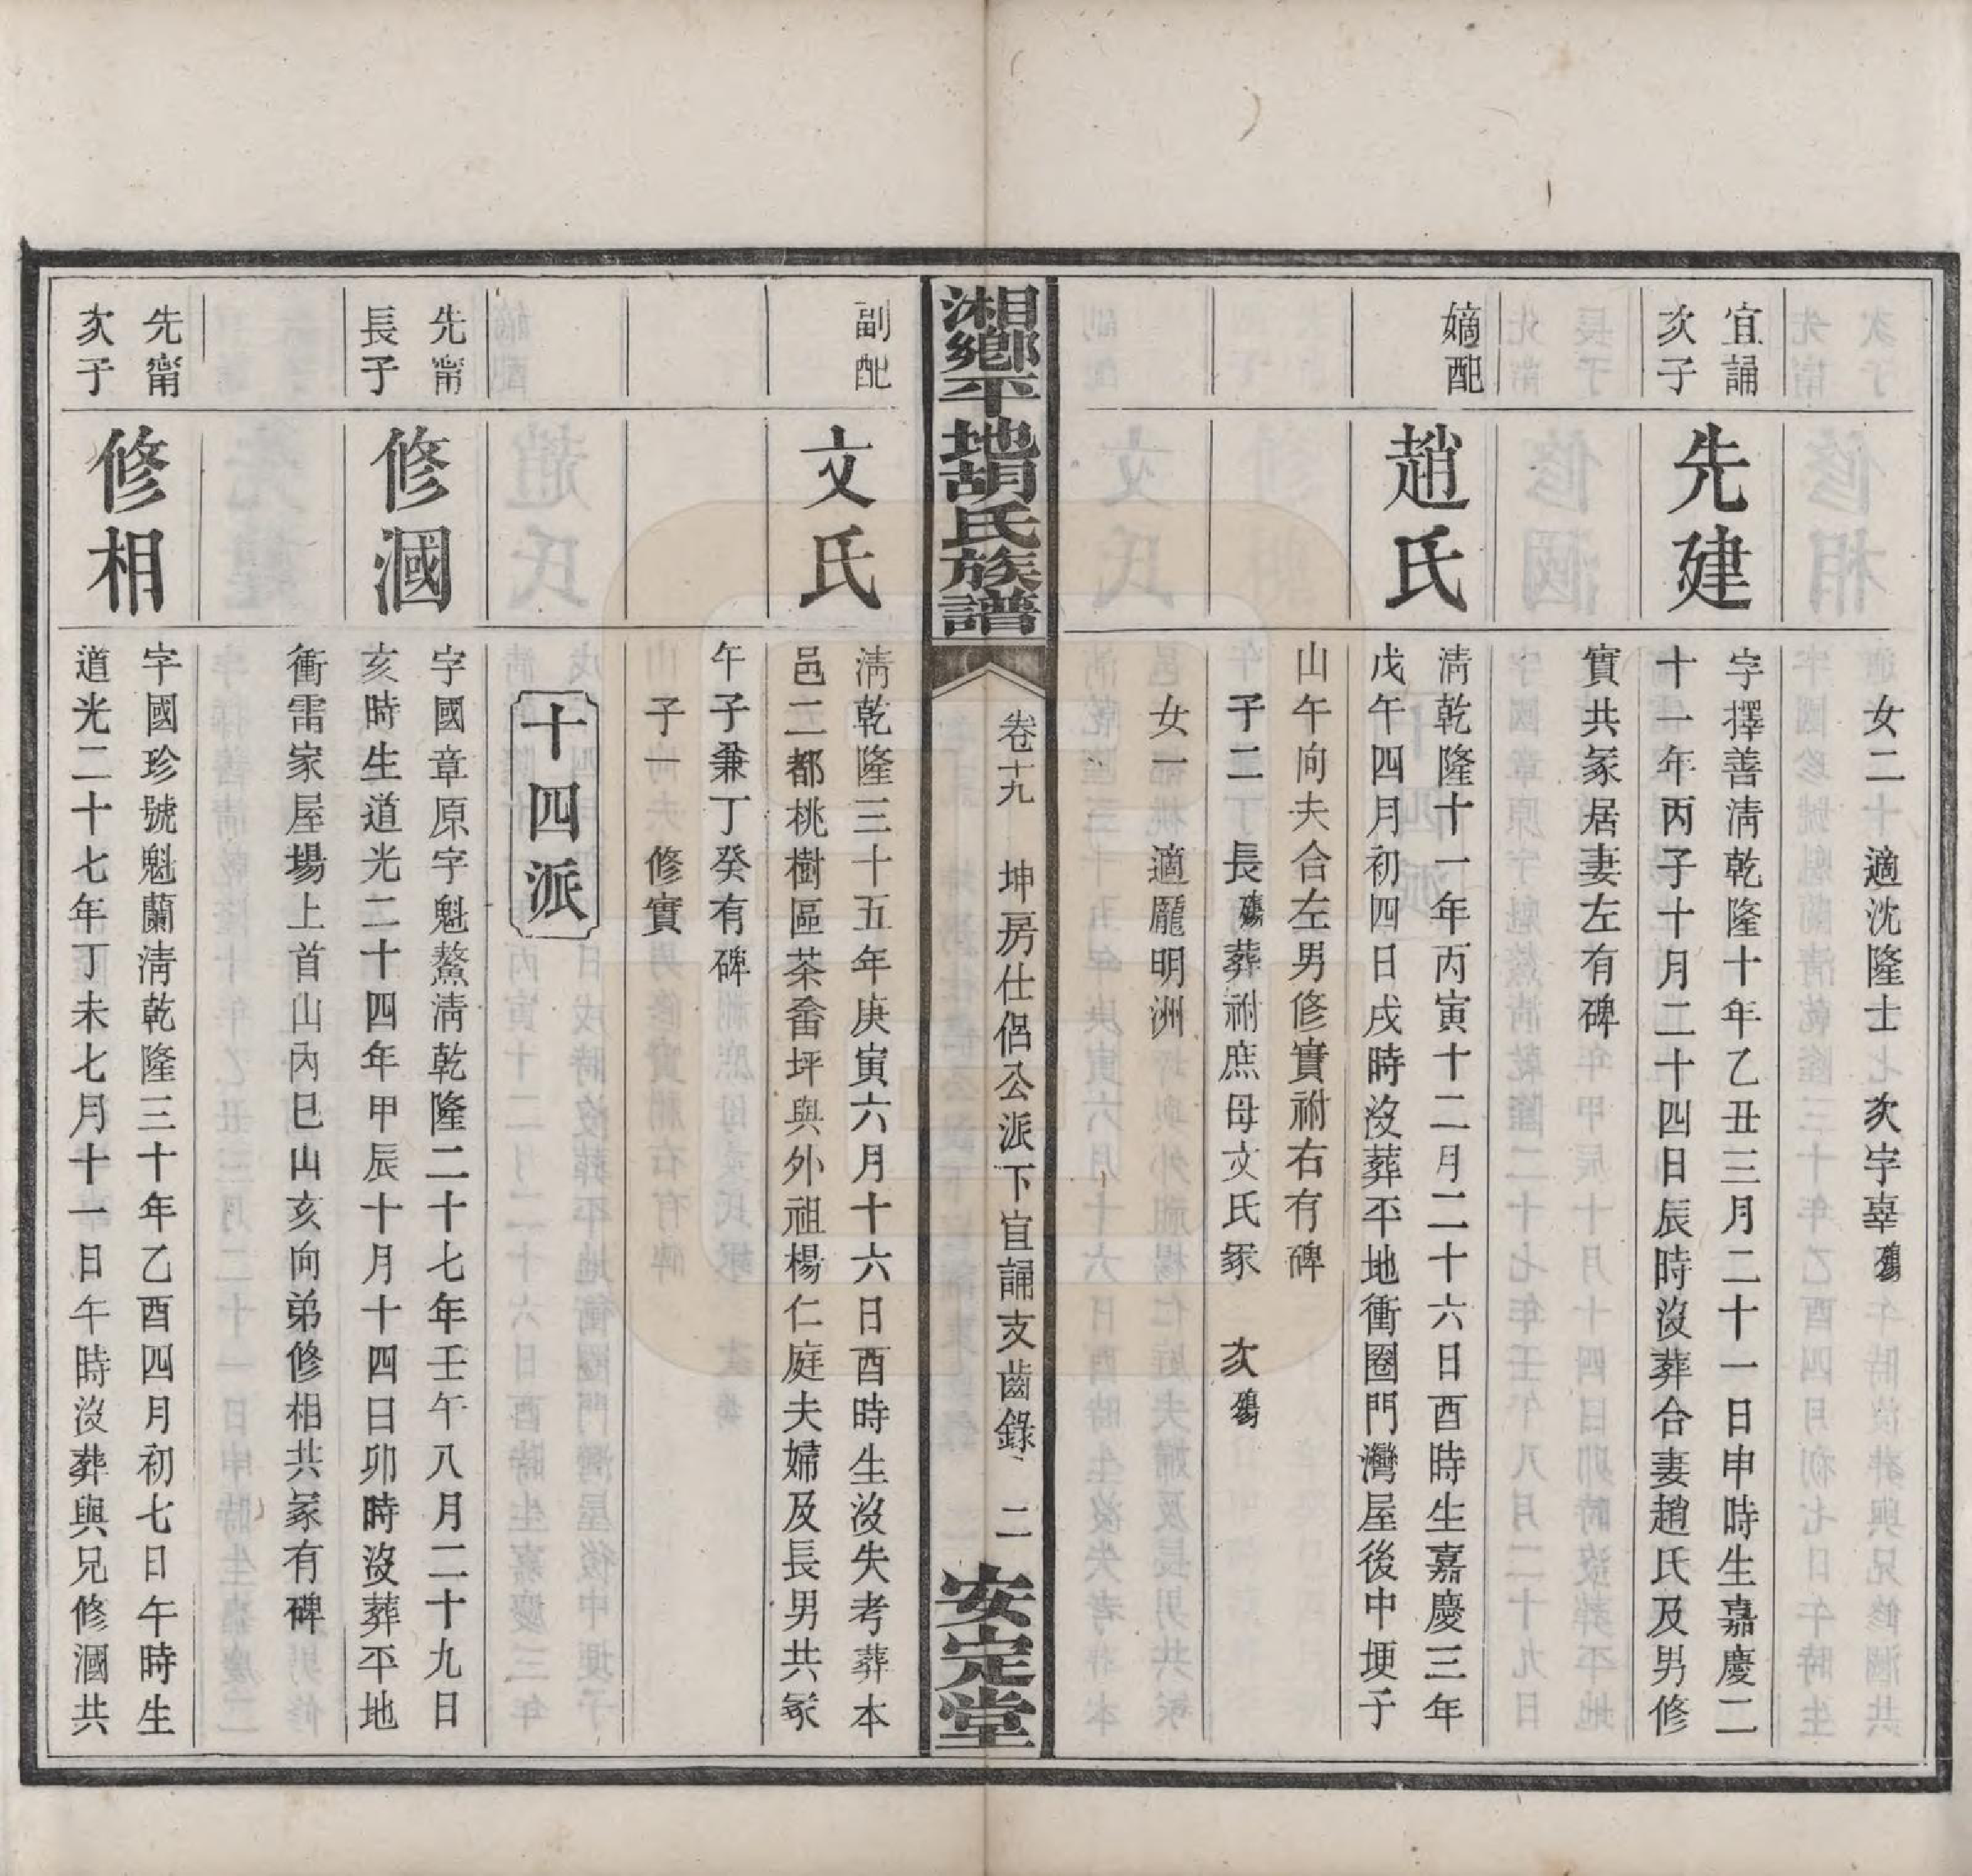 女二　適沈隆士　次字辜殤
宜誦
次子
先建
字擇善淸乾隆十年乙丑三月二十一日申時生嘉慶二
十一年丙子十月二十四日辰時沒葬合妻趙氏及男修
實共冢居妻左有碑
嫡配
趙氏
淸乾隆十一年丙寅十二月二十六日酉時生嘉慶三年
戊午四月初四日戌時沒葬平地衝圈門灣屋後中埂子
山午向夫合左男修實祔右有碑
子二　長殤葬祔庶母文氏冢　次殤
女一　適龎明洲
湘鄉平地胡氏族譜
卷十九　坤房仕侶公派下宜誦支齒錄　二
安定堂
副配
文氏
淸乾隆三十五年庚寅六月十六日酉時生沒失考葬本
邑二都桃樹區茶畲坪與外祖楊仁庭夫婦及長男共冢
午子兼丁癸有碑
子一　修實
十四派
先甯
長子
修漍
字國章原字魁鰲淸乾隆二十七年壬午八月二十九日
亥時生道光二十四年甲辰十月十四日卯時沒葬平地
衝雷家屋場上首山內巳山亥向弟修相共冢有碑
先甯
次子
修相
字國珍號魁蘭淸乾隆三十年乙酉四月初七日午時生
道光二十七年丁未七月十一日午時沒葬與兄修漍共